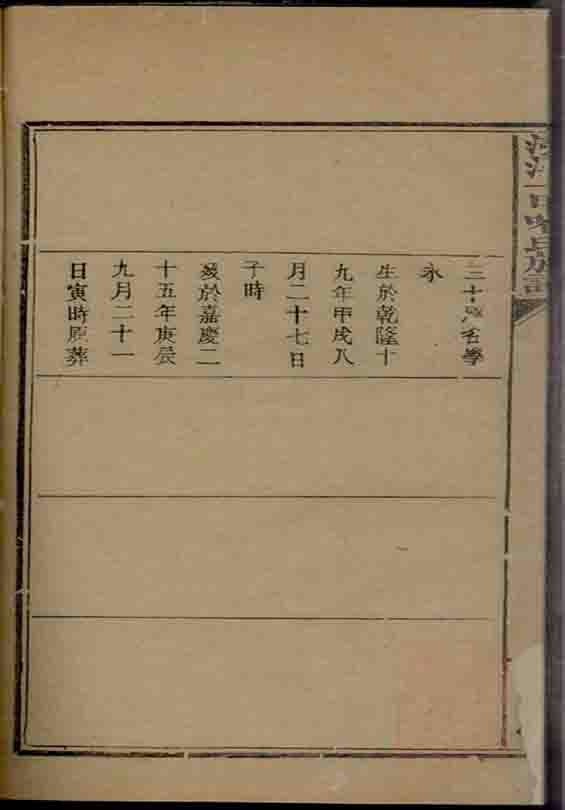 氏族譜
三十名學
永
生於乾隆十
九年甲戌八
月二十七日
子時
歿於嘉慶二
十五年庚辰
九月二十一
日寅時原葬